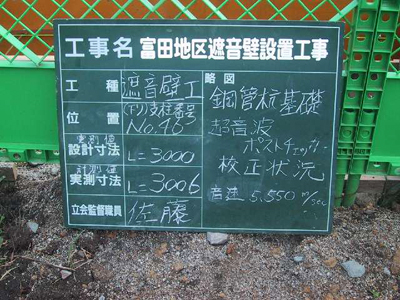 工事名 富田地区遮音壁設置工事
工種 遮音壁工
位置 (下り)支柱番号
No.46
実測値
設計寸法 L=3000
計測値
実測寸法 L=3006
立会監督職員 佐藤
略図
鋼管杭基礎
超音波
ポストチェッカー
校正状況
音速 5,550 m/sec